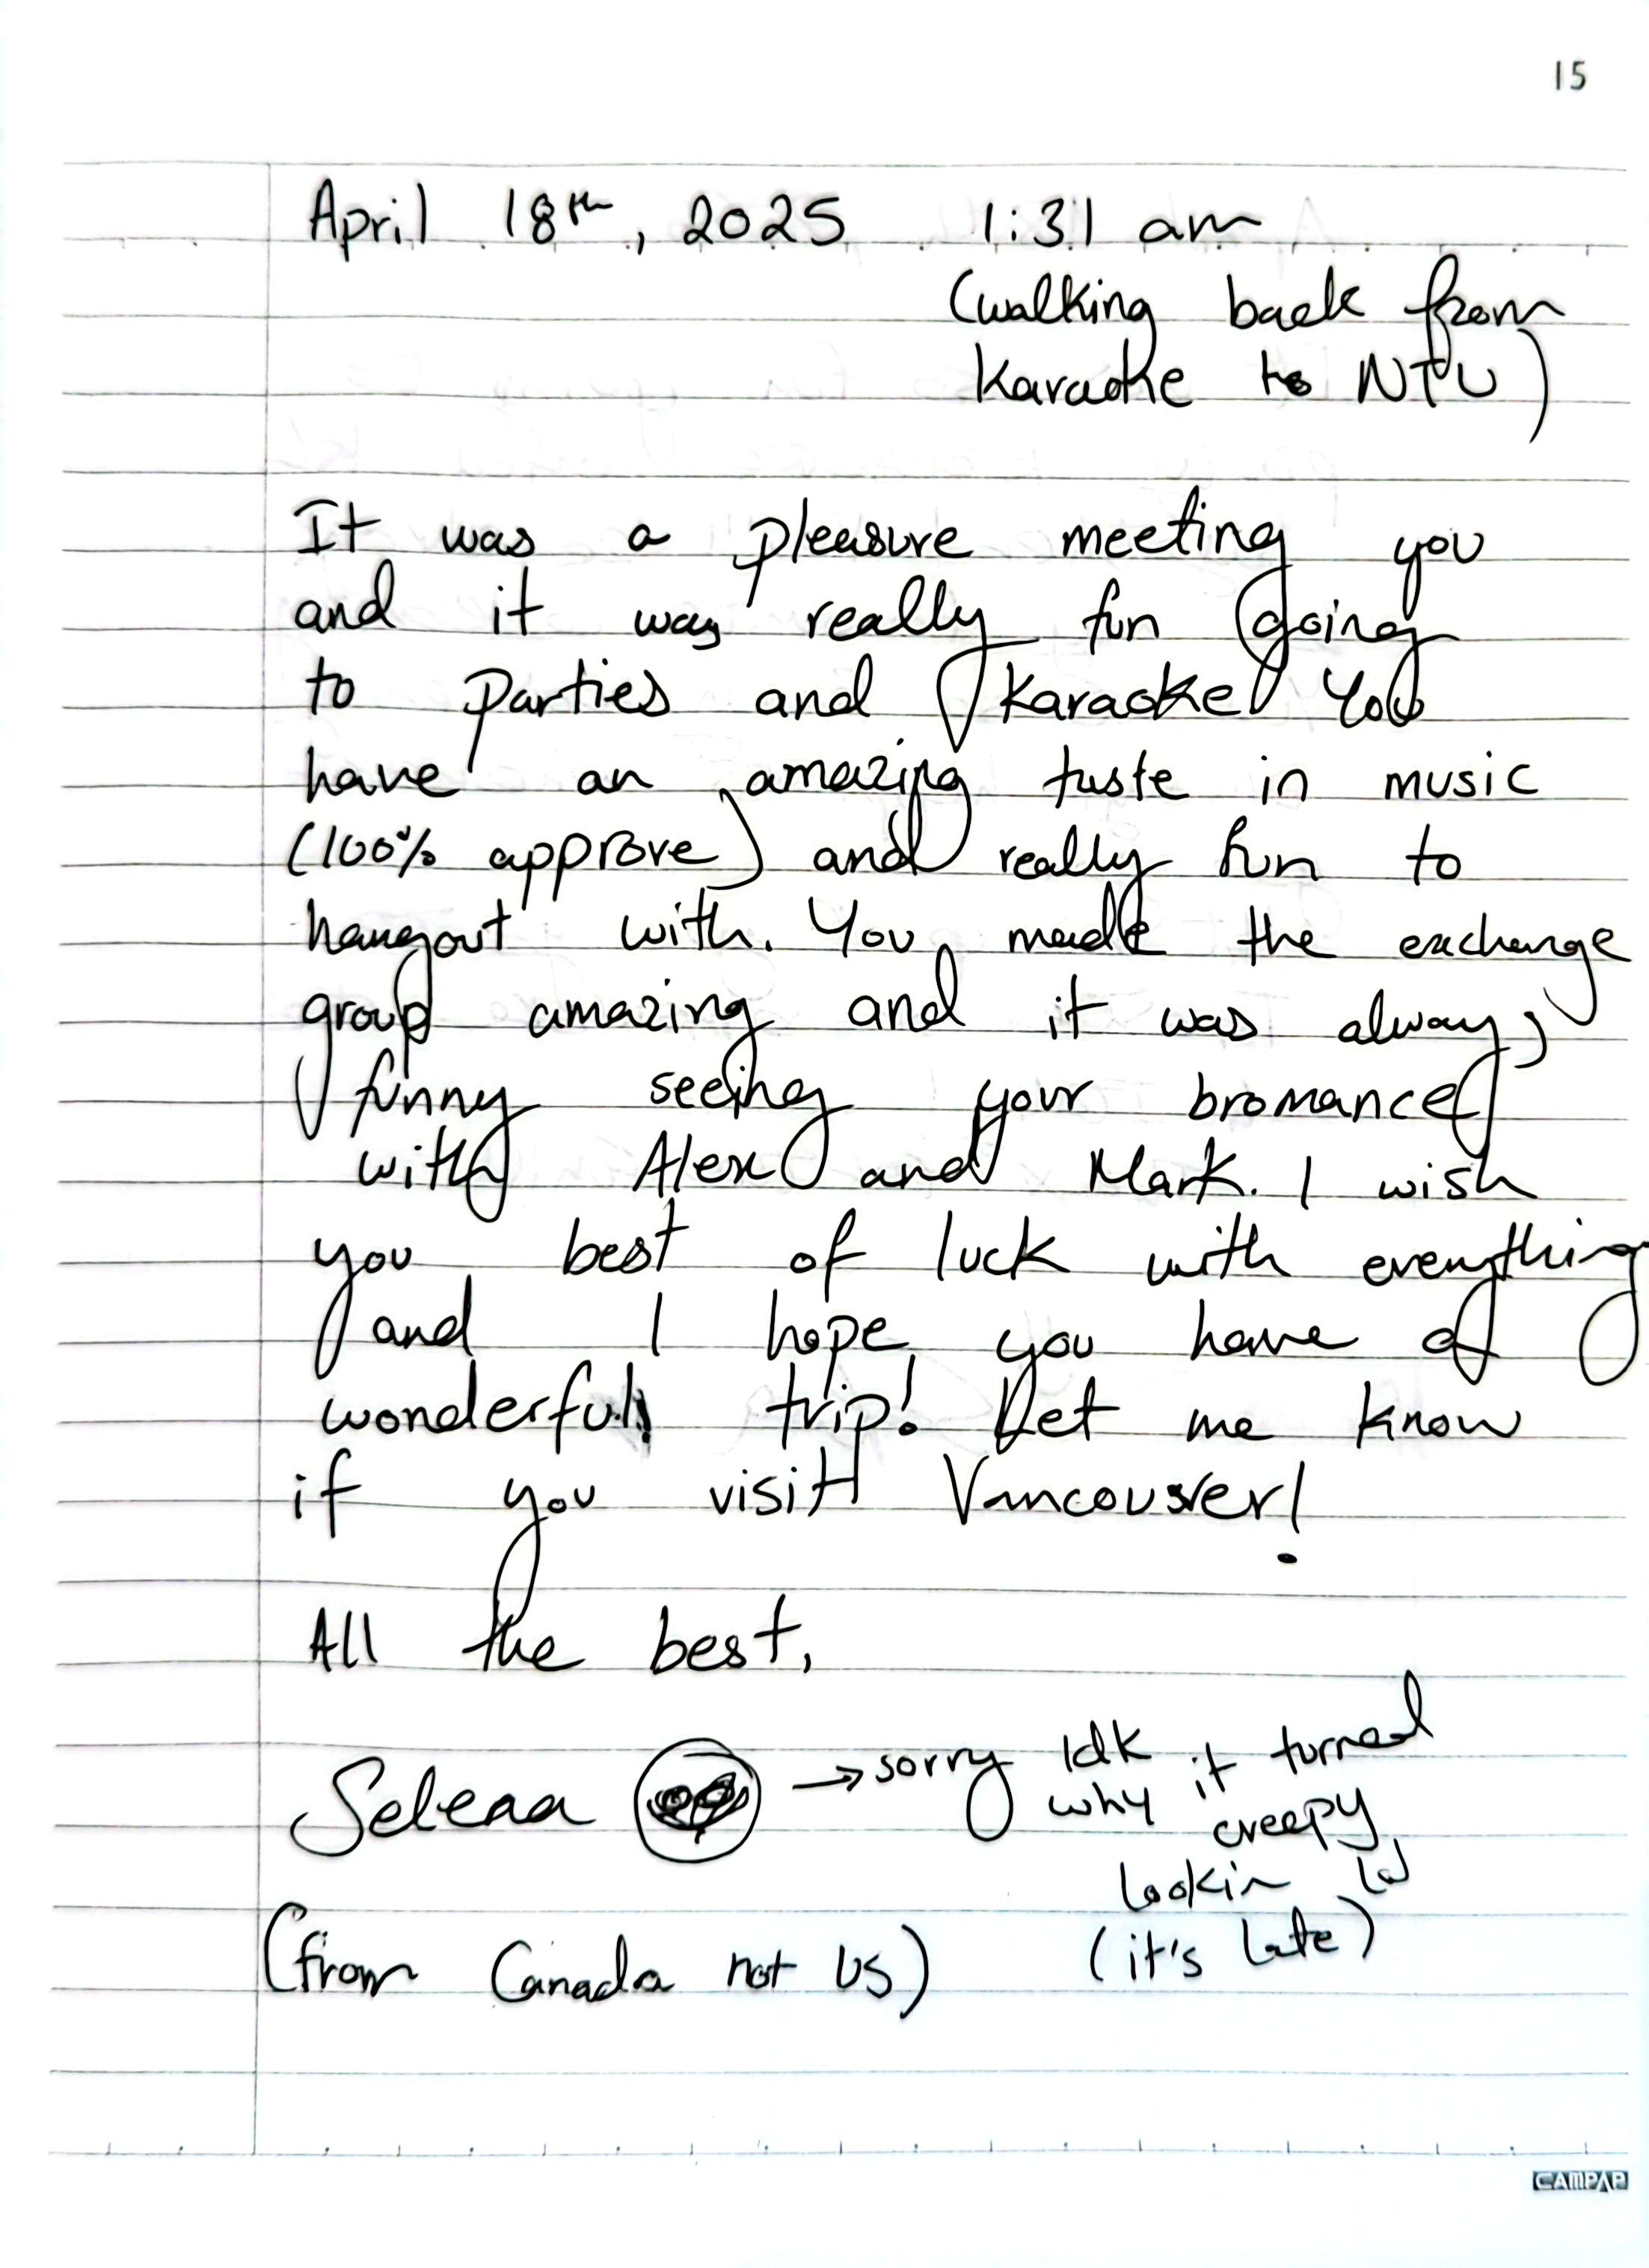 15
April 18th, 2025 1:31 am
(walking back from
Karaoke to NTU)
It was a pleasure meeting you
and it was really fun going
to parties and Karaoke You
have an amazing taste in music
(100% approve) and really fun to
hangout with. You made the exchange
group amazing and it was always
funny seeing your bromance
with Alex and Mark. I wish
you best of luck with everything
and I hope you have a
wonderful trip! Let me know
if you visit Vancouver!
All the best,
Selena → sorry idk why it turned
creepy
lookin lol
(it's late)
(from Canada not US)
CAMPAP